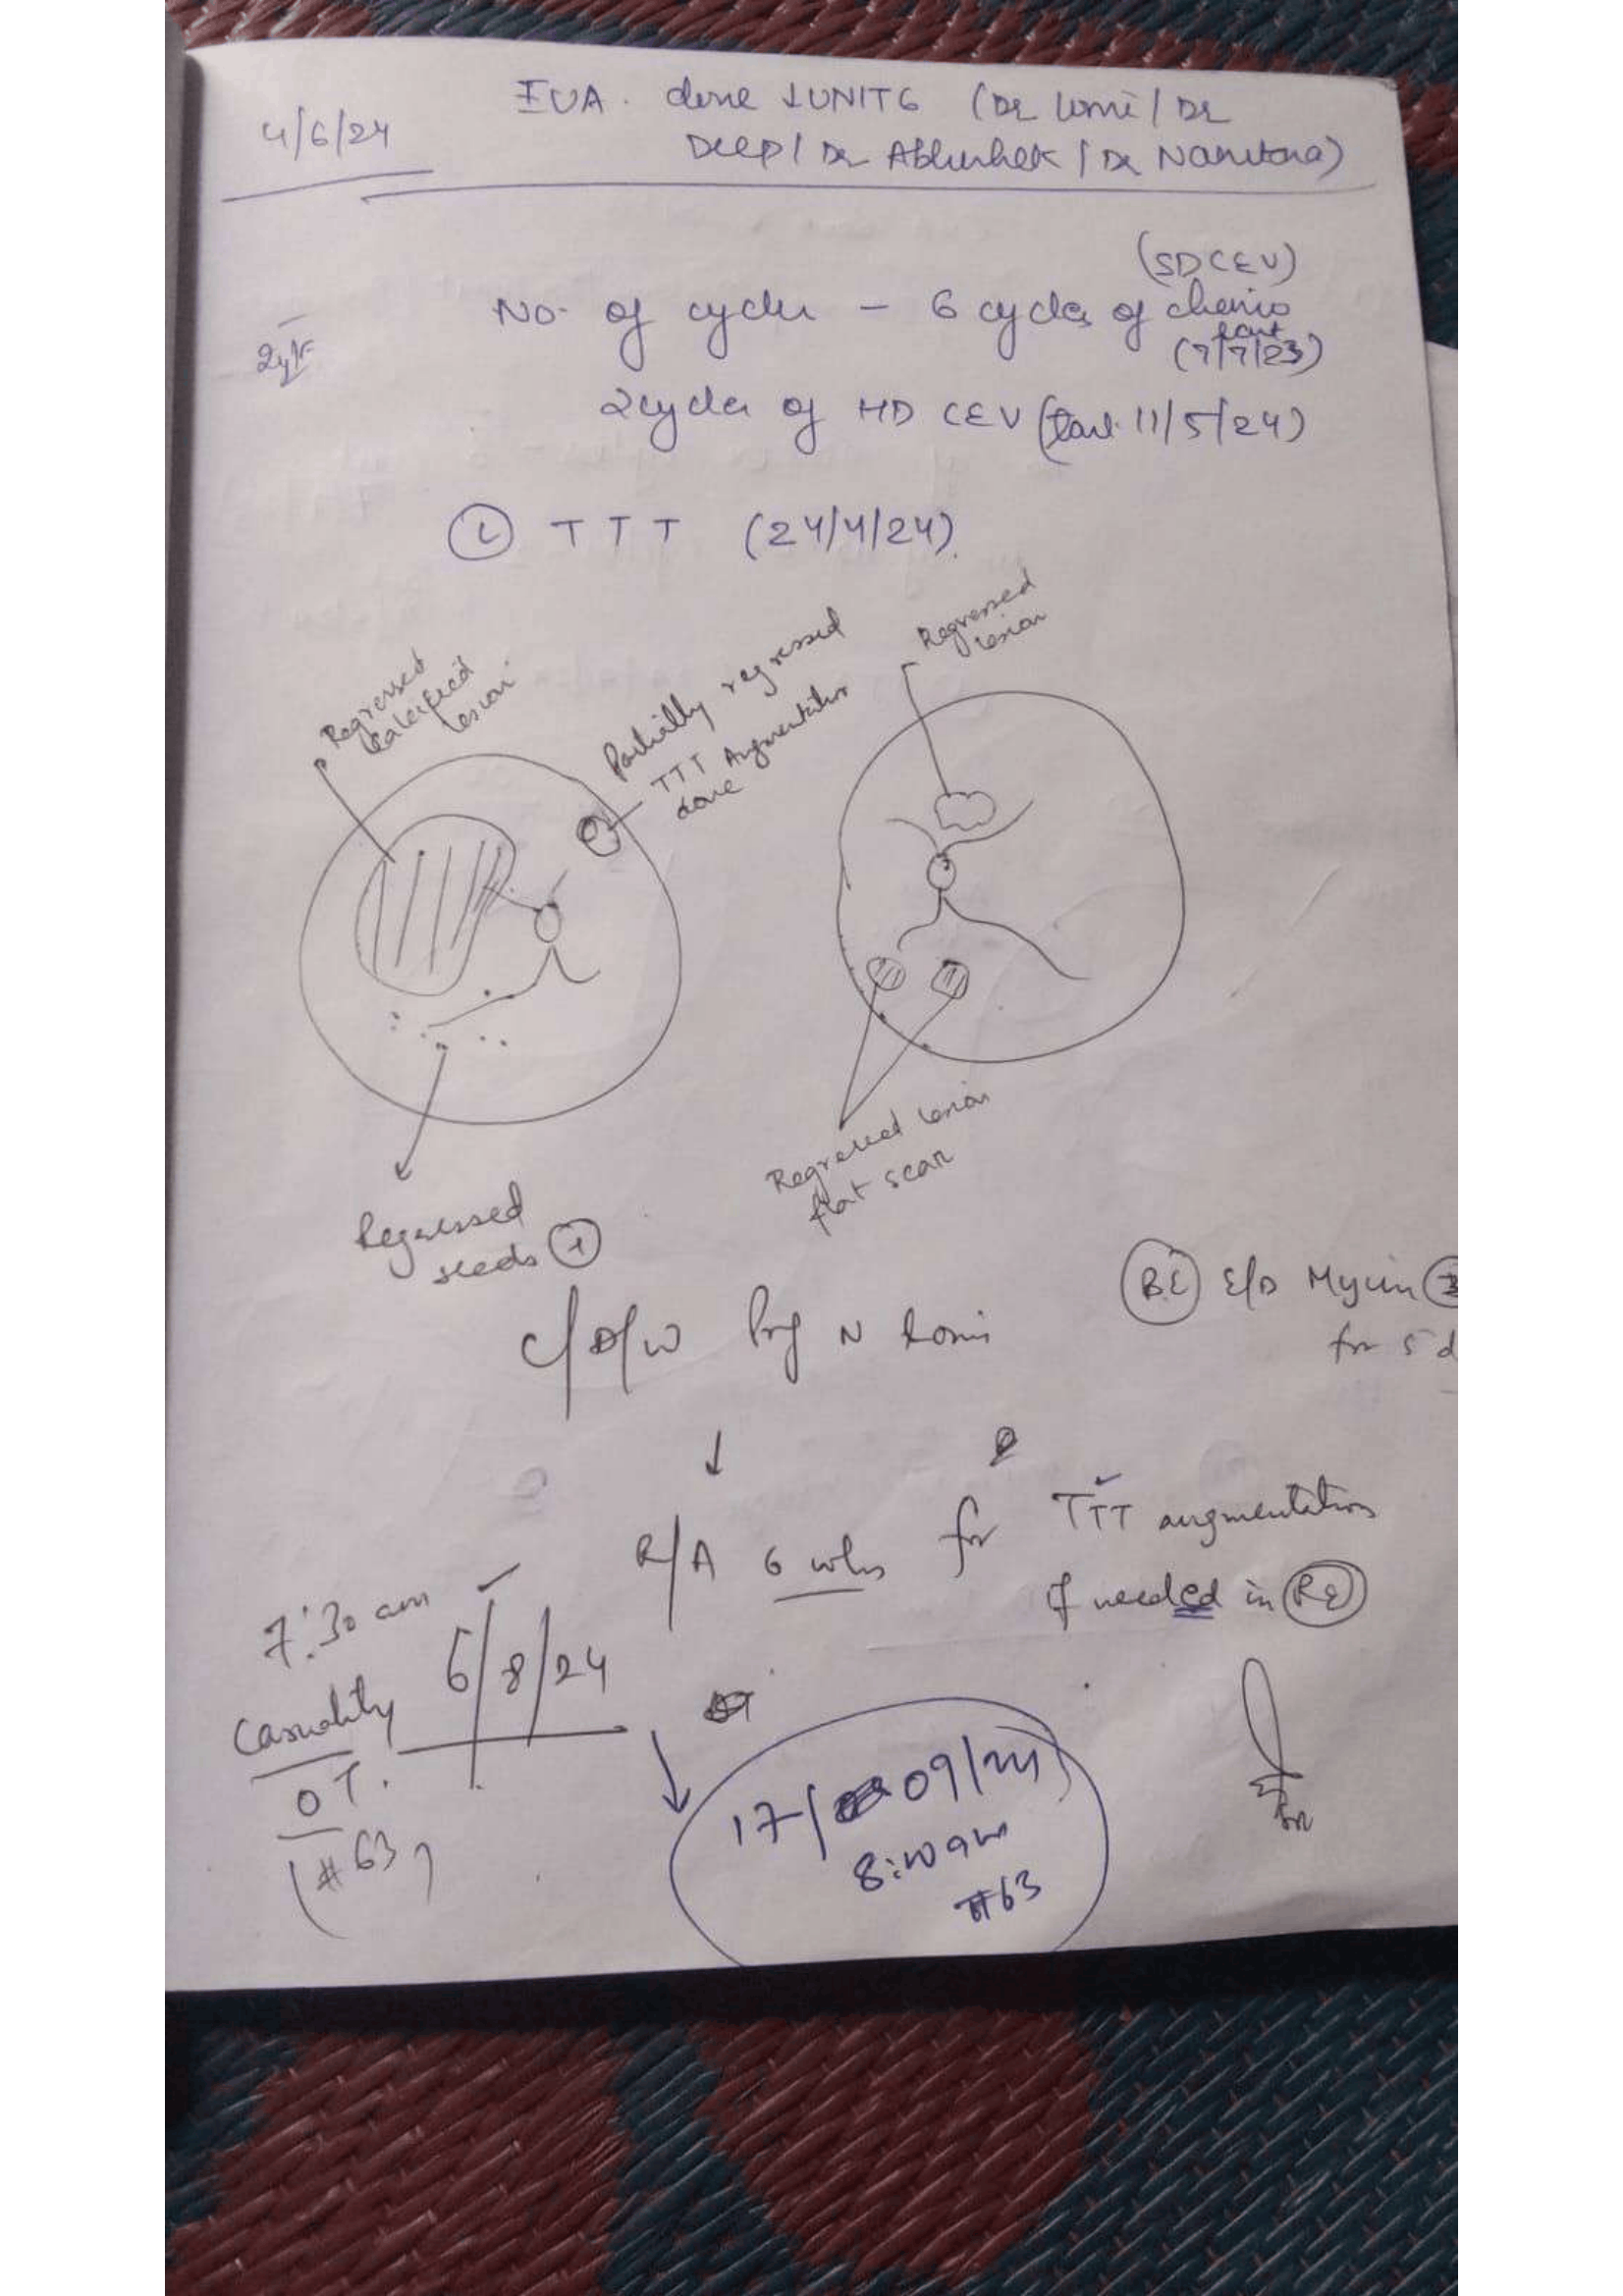 4/6/24
EUA. done ↓ UNIT 6 (Dr Lomi / Dr
Deep / Dr Abhishek / Dr
(SDCEV)
No. of cycles - 6 cycles of chemo
2yr
(last 7/7/23)
2 cycles of HD CEV (last 11/5/24)
Ⓛ TTT (24/4/24).
Regressed
calcified
lesion
Partially regressed
TTT Augmentation
done
Regressed
lesion
Regressed lesion
flat scar
Regressed
seeds (+)
(BE) E/D Mycin
for 5 d
C/D/W Prof N Lomi
↓
R/A 6 wks for TTT augmentation
if needed in (RE)
7:30 am
6/8/24
Casuality
OT.
(#63)
17/09/24
8:00 am
#63